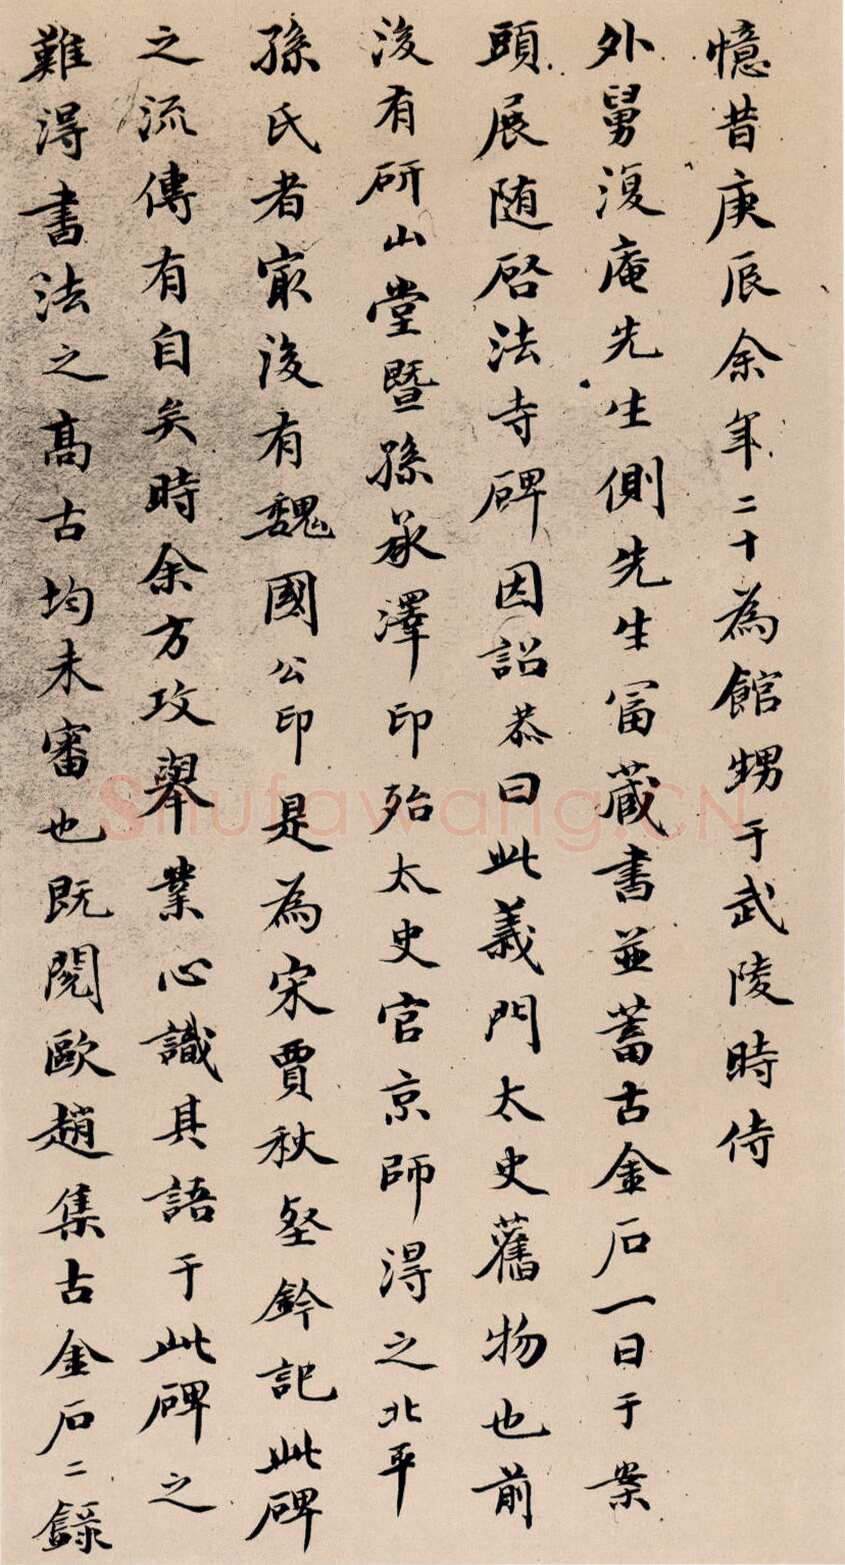 憶昔庚辰余年二十為館甥于武陵時侍
外舅復庵先生側先生富藏書並蓄古金石一日于案
頭展隨啓法寺碑因詔恭曰此義門太史舊物也前
後有研山堂暨孫承澤印殆太史官京師得之北平
孫氏者最後有魏國公印是為宋賈秋壑鈐記此碑
之流傳有自矣時余方攻舉業心識其語于此碑之
難得書法之高古均未審也既閱歐趙集古金石二錄
Shufawang.CN